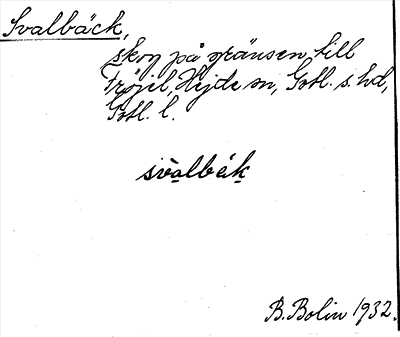 Svalbäck,
skog på gränsen till
Fröjel, Hejde sn, Gotl. s. hd,
Gotl. l.
svalbäk
B. Bolin 1932.